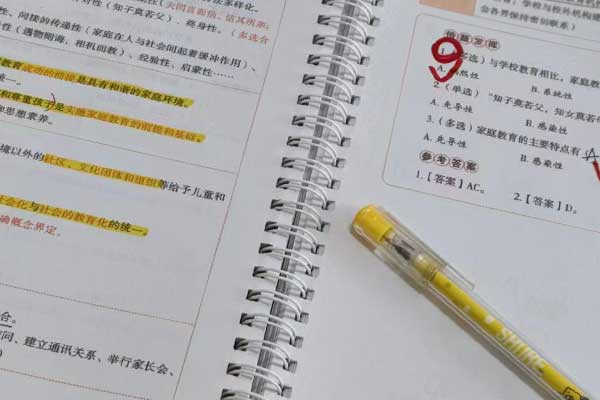 对性（知子莫若父）、终身性。（多选合
间接的传递性（家庭在人与社会间起着缓冲作用）、
性（遇物则诲、相机而教）、经验性、启蒙性……
教育成功的前提是具有和谐的家庭环境。
一。
和尊重孩子是实施家庭教育的前提和基础。
思想素养。
境以外的社区、文化团体和组织等给予儿童和
社会化与社会的教育化的统一。
确概念界定。
合。
问、建立通讯关系、举行家长会、
学校与校外机构建
会各界保持密切联系）
真题发库
9
1.（多选）与学校教育相比，家庭教
A.
然性
B.感染性
2.（单选）“知子莫若父，知女莫若母
A.先导性
B.感染性
3.（多选）家庭教育的主要特点有（A
A.先导性
B.感染性
参考答案
1.【答案】AC。
2.【答案】D。